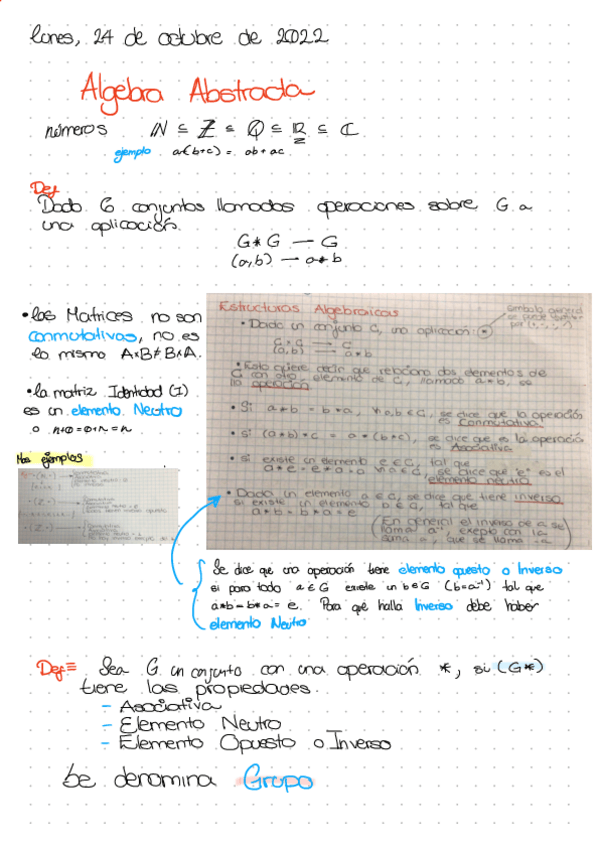 lunes, 24 de octubre de 2022
Algebra Abstracta
números ℕ ⊆ ℤ ⊆ ℚ ⊆ ℝ ⊆ ℂ
ejemplo a(b+c) = ab + ac
Def
Dado G conjuntos llamados operaciones sobre G a
una aplicación.
G * G — G
(a,b) — a * b
• las Matrices no son
conmutativas, no es
lo mismo A×B ≠ B×A.
• la matriz Identidad (I)
es un elemento Neutro
o n+0=0+n=n
Mas ejemplos
Estructuras Algebraicas
símbolo general
se puede
por
• Dado un conjunto G, una aplicación:
(a, b) → a * b
• Esto quiere decir que relaciona dos elementos de
G con otro elemento de G, llamado a * b, se
operación
• Si a * b = b * a, ∀ a,b ∈ G, se dice que la operación
es Conmutativa
• Si (a * b) * c = a * (b * c), se dice que es la operació
es Asociativa
• Si existe un elemento e ∈ G, tal que
a * e = e * a = a ∀ a ∈ G, se dice que "e" es el
elemento neutro
• Dado un elemento a ∈ G, se dice que tiene inverso
si existe un elemento b ∈ G, tal que
a * b = b * a = e
(En general el inverso de a se
llama a⁻¹, exepto con la
suma +, que se llama -a)
Se dice que una operación tiene elemento opuesto o Inverso
si para todo a ∈ G existe un b ∈ G (b=a⁻¹) tal que
a*b = b*a = e. Para qué halla Inverso debe haber
elemento Neutro
Def ≡ Sea G un conjunto con una operación *, si (G*)
tiene las propiedades.
- Asociativa
- Elemento Neutro
- Elemento Opuesto o Inverso
Se denomina Grupo